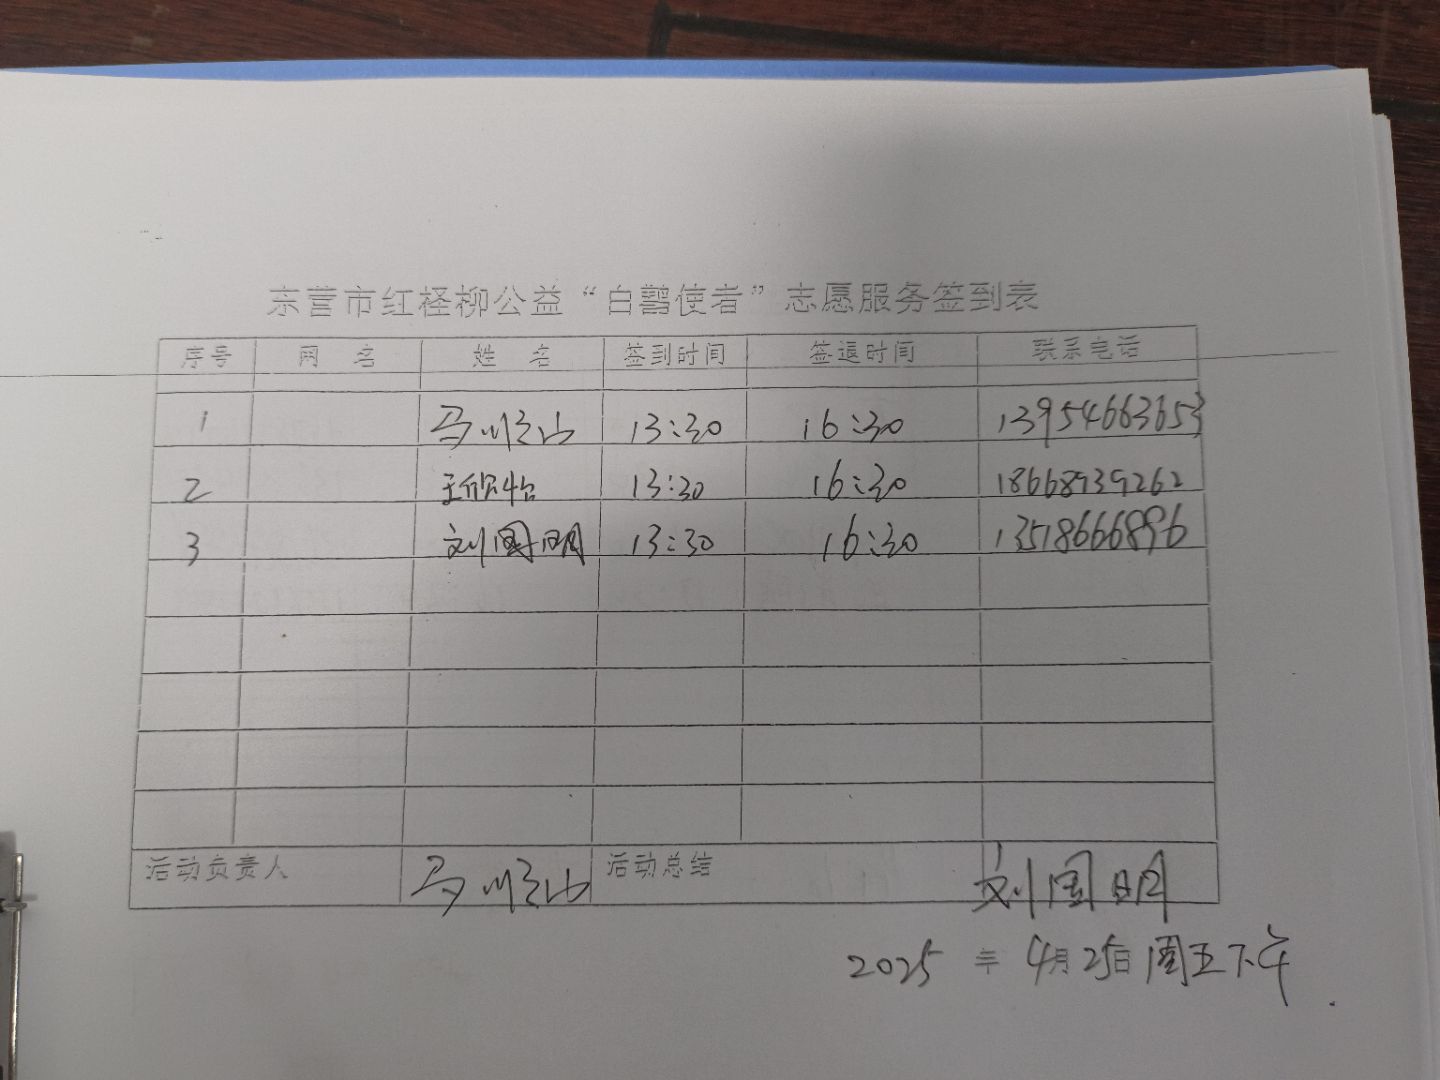 东营市红柽柳公益“白鹳使者”志愿服务签到表
序号 网名 姓名 签到时间 签退时间 联系电话
1 马顺山 13:30 16:30 13954663653
2 王欣怡 13:30 16:30 18668939262
3 刘国明 13:30 16:30 13518666896
活动负责人 马顺山 活动总结 刘国明
2025 年 4月25日 周五下午